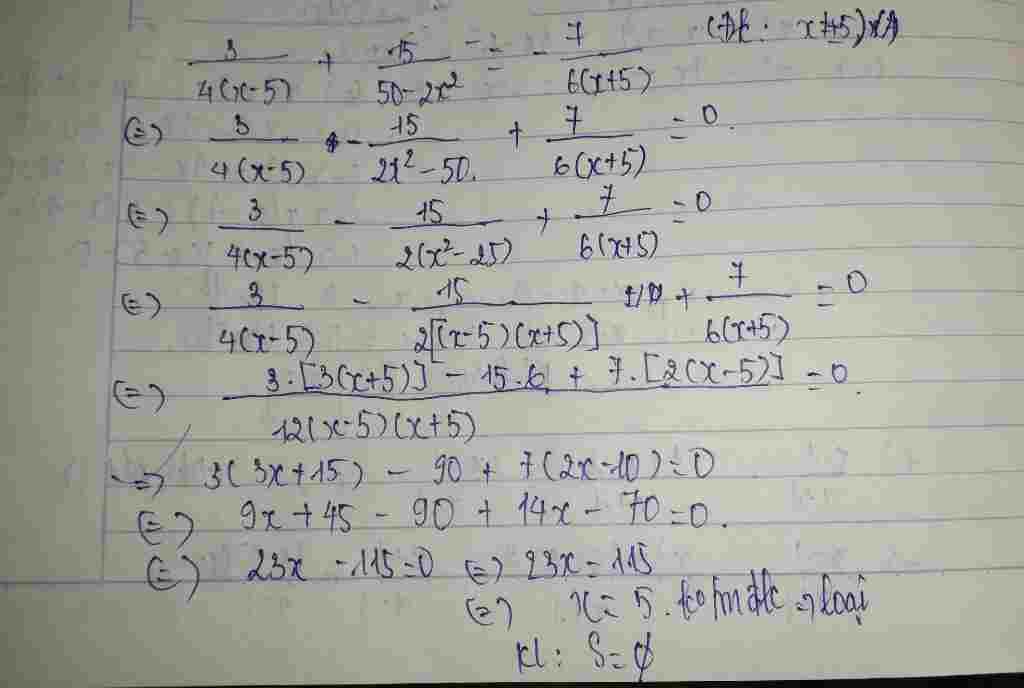 3/(4(x-5)) + 15/(50-2x²) = -7/(6(x+5)) (Đk: x≠±5)
(=) 3/(4(x-5)) - 15/(2x²-50) + 7/(6(x+5)) = 0.
(=) 3/(4(x-5)) - 15/(2(x²-25)) + 7/(6(x+5)) = 0
(=) 3/(4(x-5)) - 15/(2[(x-5)(x+5)]) + 7/(6(x+5)) = 0
(=) (3.[3(x+5)] - 15.6 + 7.[2(x-5)])/(12(x-5)(x+5)) = 0.
=) 3(3x+15) - 90 + 7(2x-10) = 0
(=) 9x + 45 - 90 + 14x - 70 = 0.
(=) 23x - 115 = 0 (=) 23x = 115
(=) x = 5. ko t/m đk => loại
Kl: S = ∅